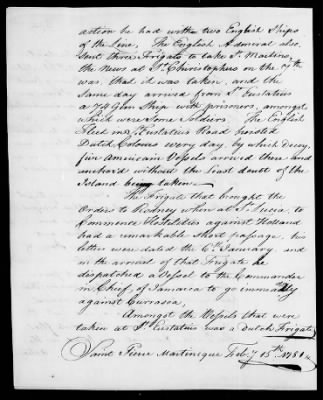 action be had with two English Ships
of the Line, The English Admiral also
sent three Frigates to take St. Martins,
the news at St. Christophers on the 7th
was, that it was taken, and the
same day arrived from St. Eustatius
a 74 Gun Ship with prisoners, amongst
which were some Soldiers. The English
Fleet in St. Eustatius Road hoisted
Dutch Colours every day, by which Decoy,
five American Vessels arrived there and
anchored without the least doubt of the
Island being taken.
The Frigate that brought the
Orders to Rodney when at St. Lucia, to
Commence Hostilities against Holland
had a remarkable short passage, his
letters were dated the 6th January, and
on the arrival of that Frigate he
despatched a Vessel to the Commander
in Chief, of Jamaica to go immedily
against Currasoa,
Amongst the Vessels that were
taken at St. Eustatius was a Dutch Frigate
Saint Pierre Martinique Feby 15th 1781